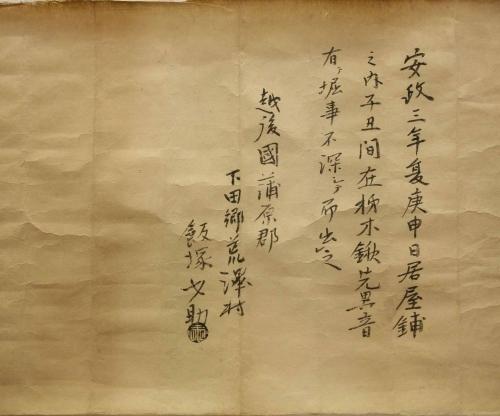 安政三年夏庚申日居屋鋪
之内子丑间在杤木鍬先異音
有ヿ堀事不深シテ而出之
越後國蒲原郡
下田郷荒澤村
飯塚七助